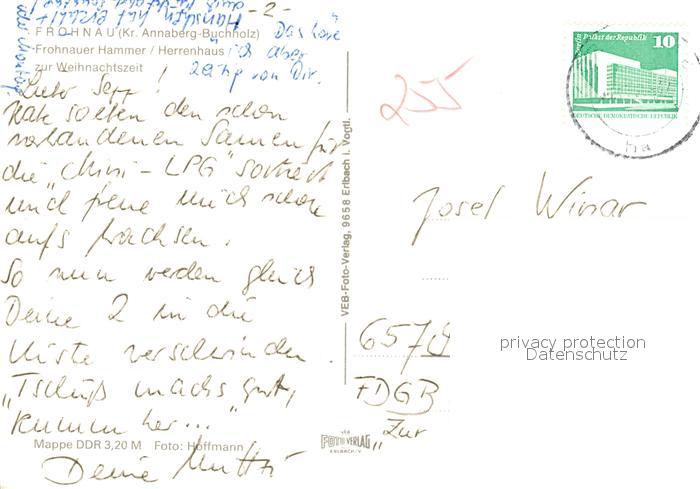 -2-
Hänschen hat erzählt
"Das Leve"
FROHNAU (Kr. Annaberg-Buchholz)
Frohnauer Hammer / Herrenhaus
zur Weihnachtszeit
ich aber
von Dir.
Lieber Sepp!
Habe soeben den schon
vorhandenen Samen für
die "Chini-LPG" sortiert
und freue mich schon
aufs Wachsen.
So nun werden gleich
Deine 2 in die
Kiste verschwinden.
"Tschüß machs gut,
kumm her..."
Deine Mutti
Mappe DDR 3,20 M Foto: Hoffmann
VEB-Foto-Verlag, 9658 Erlbach i. Vogtl.
255
Palast der Republik
10
DEUTSCHE DEMOKRATISCHE REPUBLIK
Josef Winar
657
FDGB
"Zur
privacy protection
Datenschutz
VEB
FOTO VERLAG
ERLBACH/V.